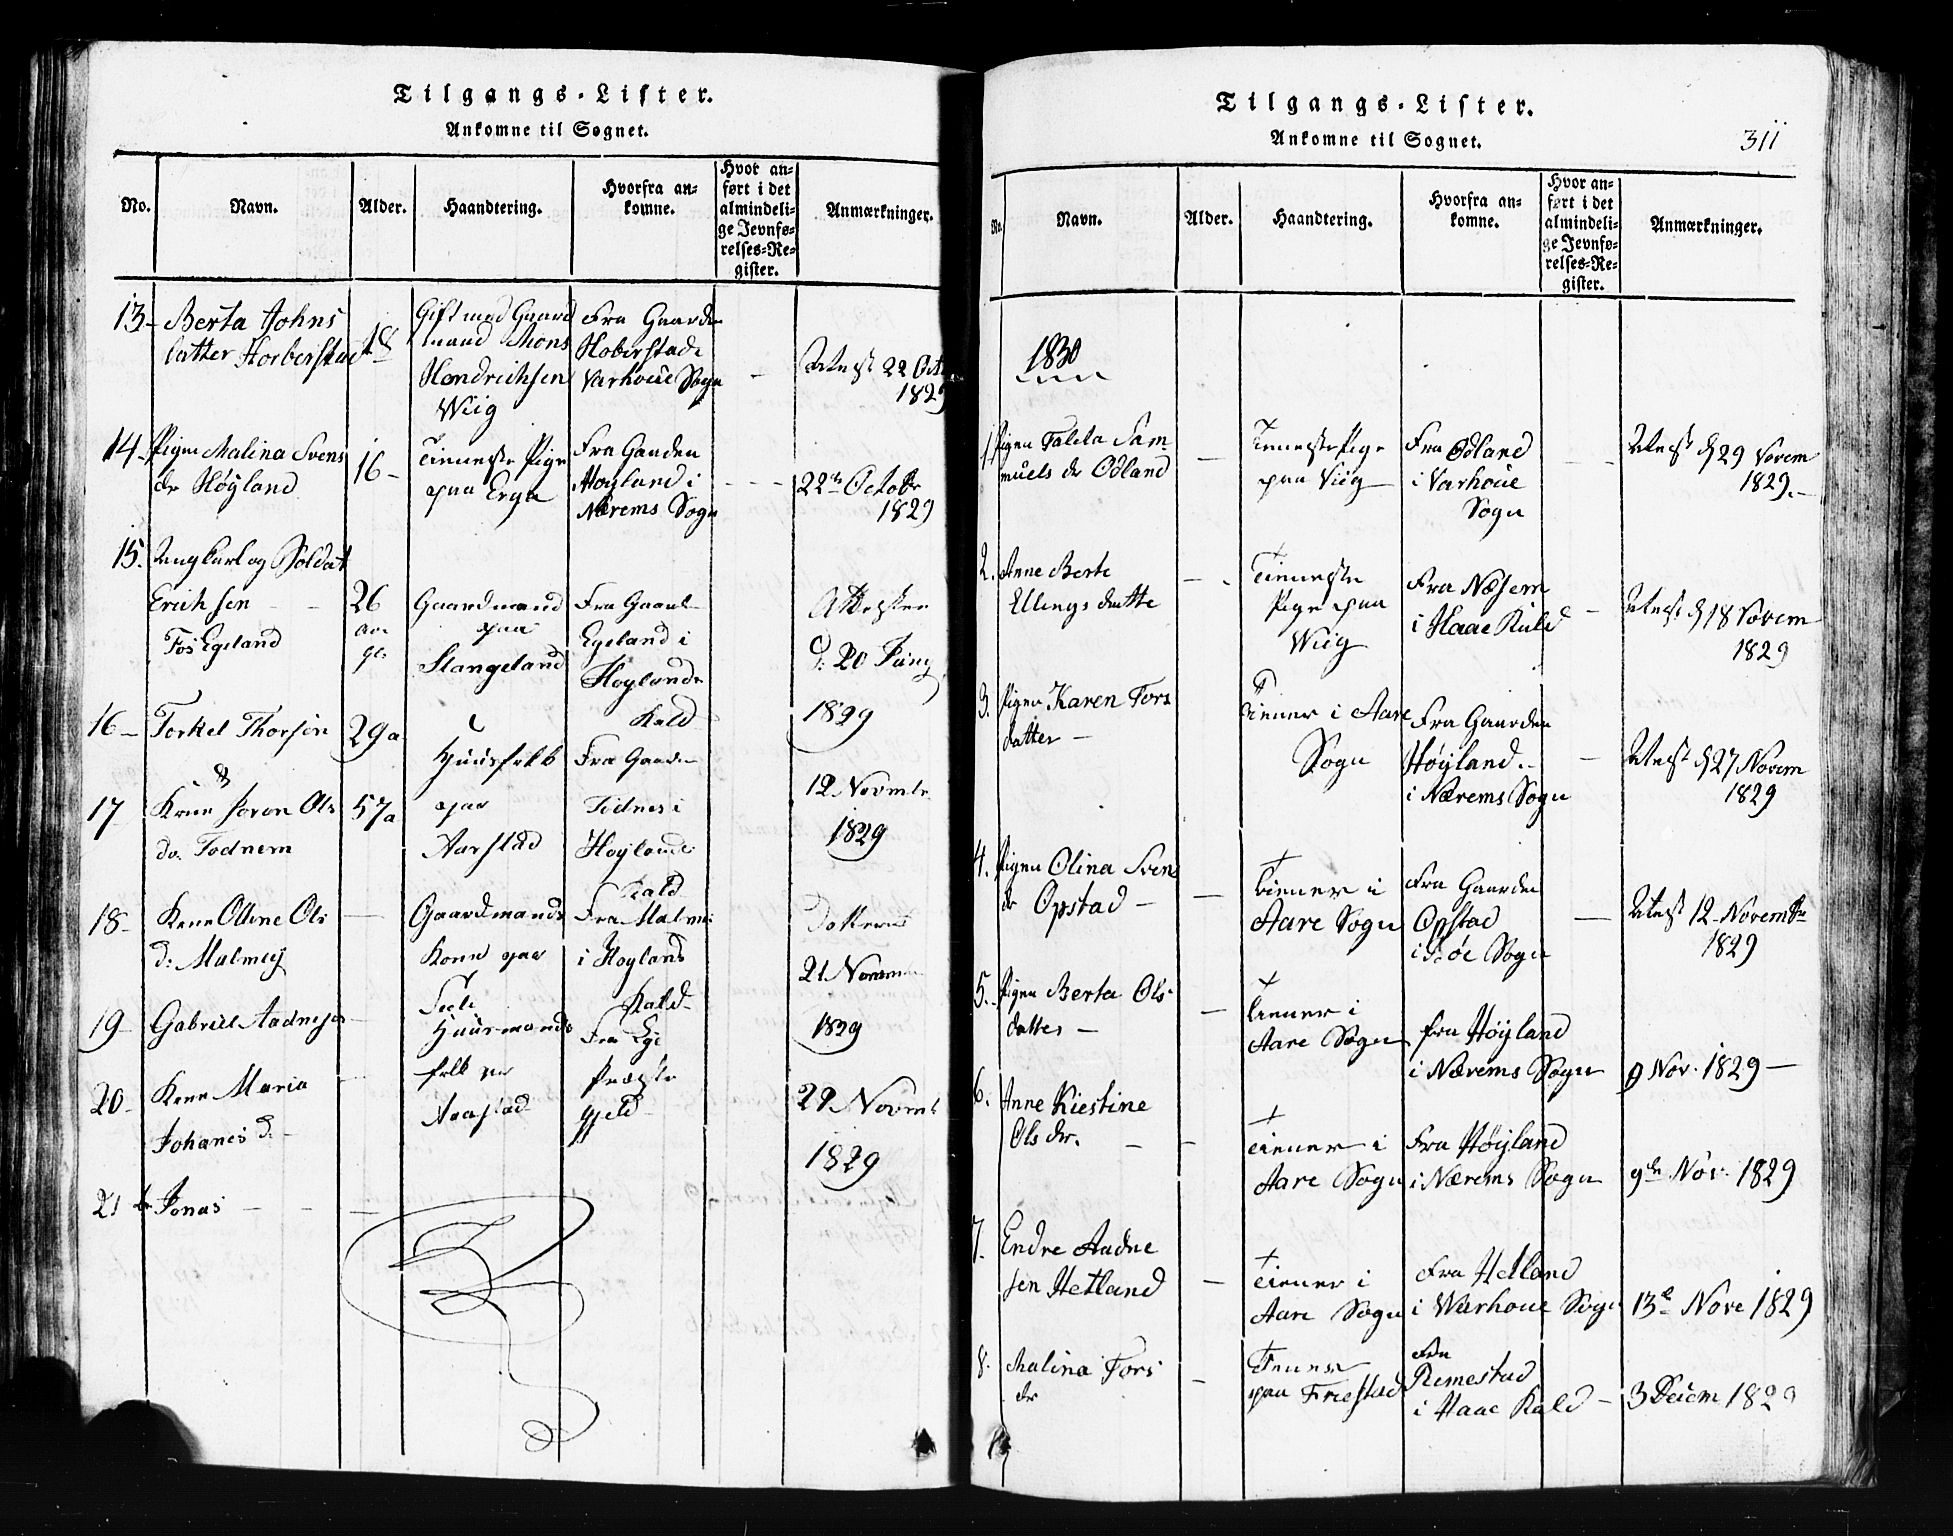 Tilgangs-Lister.
Ankomne til Sognet.
No. Navn. Alder. Haandtering. Hvorfra an-
komne. Hvor an-
ført i det
almindeli-
ge Jevnfø-
relses-Re-
gister. Anmærkninger.
13- Berta Johns
datter Horberstad 18
Gift med Gaard
mand Mons
Hendrichsen
Wiig
Fra Gaarden
Hoberstade
Varhoue Sogn
- Attest 22 Oct
1829
14- Pigen Malina Svens
dr Høyland 16-
Tieneste Pige
paa Erga
Fra Gaarden
Høyland i
Nærems Sogn
22de Octobr
1829
15. Ungkarl og Soldat
Erichsen
Fos Egeland
26
Gaardmand
paa
Stangeland
Fra Gaard
Egeland i
Høylands
Kald
Attester
d: 20 Juny
1829
16- Torkel Thorsen 29 a
&
17 Kone Joron Ols
dr. Todnem 57 a
Huusfolk
paa
Aarstad
Fra Gaarde
Tidnes i
Høylands
Kald
12 Novmbr
1829
18- Kone Oline Ols
d: Malmey
Gaardmands
Kone paa
Fra Malmei
i Høylands
Kald
21 Novem
1829
19- Gabriel Aadnesen
20- Kone Maria
Johanes d. -
21 Jonas - - -
Huusmands
folk paa
Aarstad
Fra
Præste
gjeld
29 Novmb
1829
Tilgangs-Lister.
Ankomne til Sognet.
311
No. Navn. Alder. Haandtering. Hvorfra an-
komne. Hvor an-
ført i det
almindeli-
ge Jevnfø-
relses-Re-
gister. Anmærkninger.
1830
1. Pigen Taleta Sam
muels dr Odland
-
Tieneste Pige
paa Viig
Fra Odland
i Varhoue
Sogn
Attest d 29 Novem
1829.
2. Anne Berte
Ellings datte
Tieneste
Pige paa
Wiig
Fra Næsem
i Haae Kald
Attest d 18 Novem
1829
3. Pigen Karen Tors
datter -
Tiener i Aare
Sogn
Fra Gaarden
Høyland.
i Nærems Sogn
Attest d 27 Novem
1829
4. Pigen Olina Sven
dr Opstad -
Tiener i
Aare Sogn
Fra Gaarden
Opstad
i Boe Sogn
Attest 12 Novembr
1829
5. Pigen Berta Ols
datter -
Tiener i
Aare Sogn
fra Høyland
i Nærems Sogn
9 Nov. 1829 -
6. Anne Kiestine
Ols dr. -
Tiener i
Aare Sogn
Fra Høyland
i Nærems Sogn
9de Nov. 1829
7. Endre Aadne
sen Hetland
Tiener i
Aare Sogn
Fra Hetland
i Warhoue Sogn
13de Nove 1829
8. Malina Tors
dr
Tiener
paa Friestad
Fra
Remestad
i Haae Kald
- 3 Decem 1829